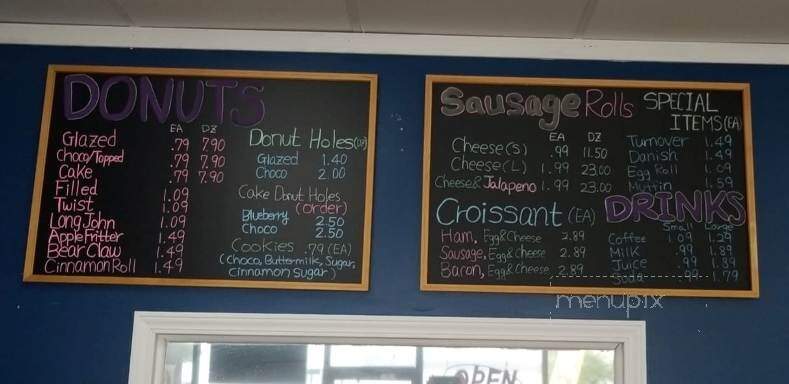 DONUTS
EA DZ
Glazed .79 7.90
Choco/Topped .79 7.90
Cake .79 7.90
Filled 1.09
Twist 1.09
Long John 1.09
Apple Fritter 1.49
Bear Claw 1.49
Cinnamon Roll 1.49
Donut Holes
Glazed 1.40
Choco 2.00
Cake Donut Holes
(order)
Blueberry 2.50
Choco 2.50
Cookies .79 (EA)
(Choco, Buttermilk, Sugar,
Cinnamon Sugar)
Sausage Rolls
EA DZ
Cheese(S) .99 11.50
Cheese(L) 1.99 23.00
Cheese& Jalapeno 1.99 23.00
Croissant (EA)
Ham, Egg&Cheese 2.89
Sausage, Egg& Cheese 2.89
Bacon, Egg& Cheese 2.89
SPECIAL
ITEMS(EA)
Turnover 1.49
Danish 1.49
Egg Roll 1.09
Muffin 1.59
DRINKS
Small Large
Coffee 1.09 1.29
Milk .99 1.89
Juice .99 1.89
Soda .99 1.79
menupix
OPEN